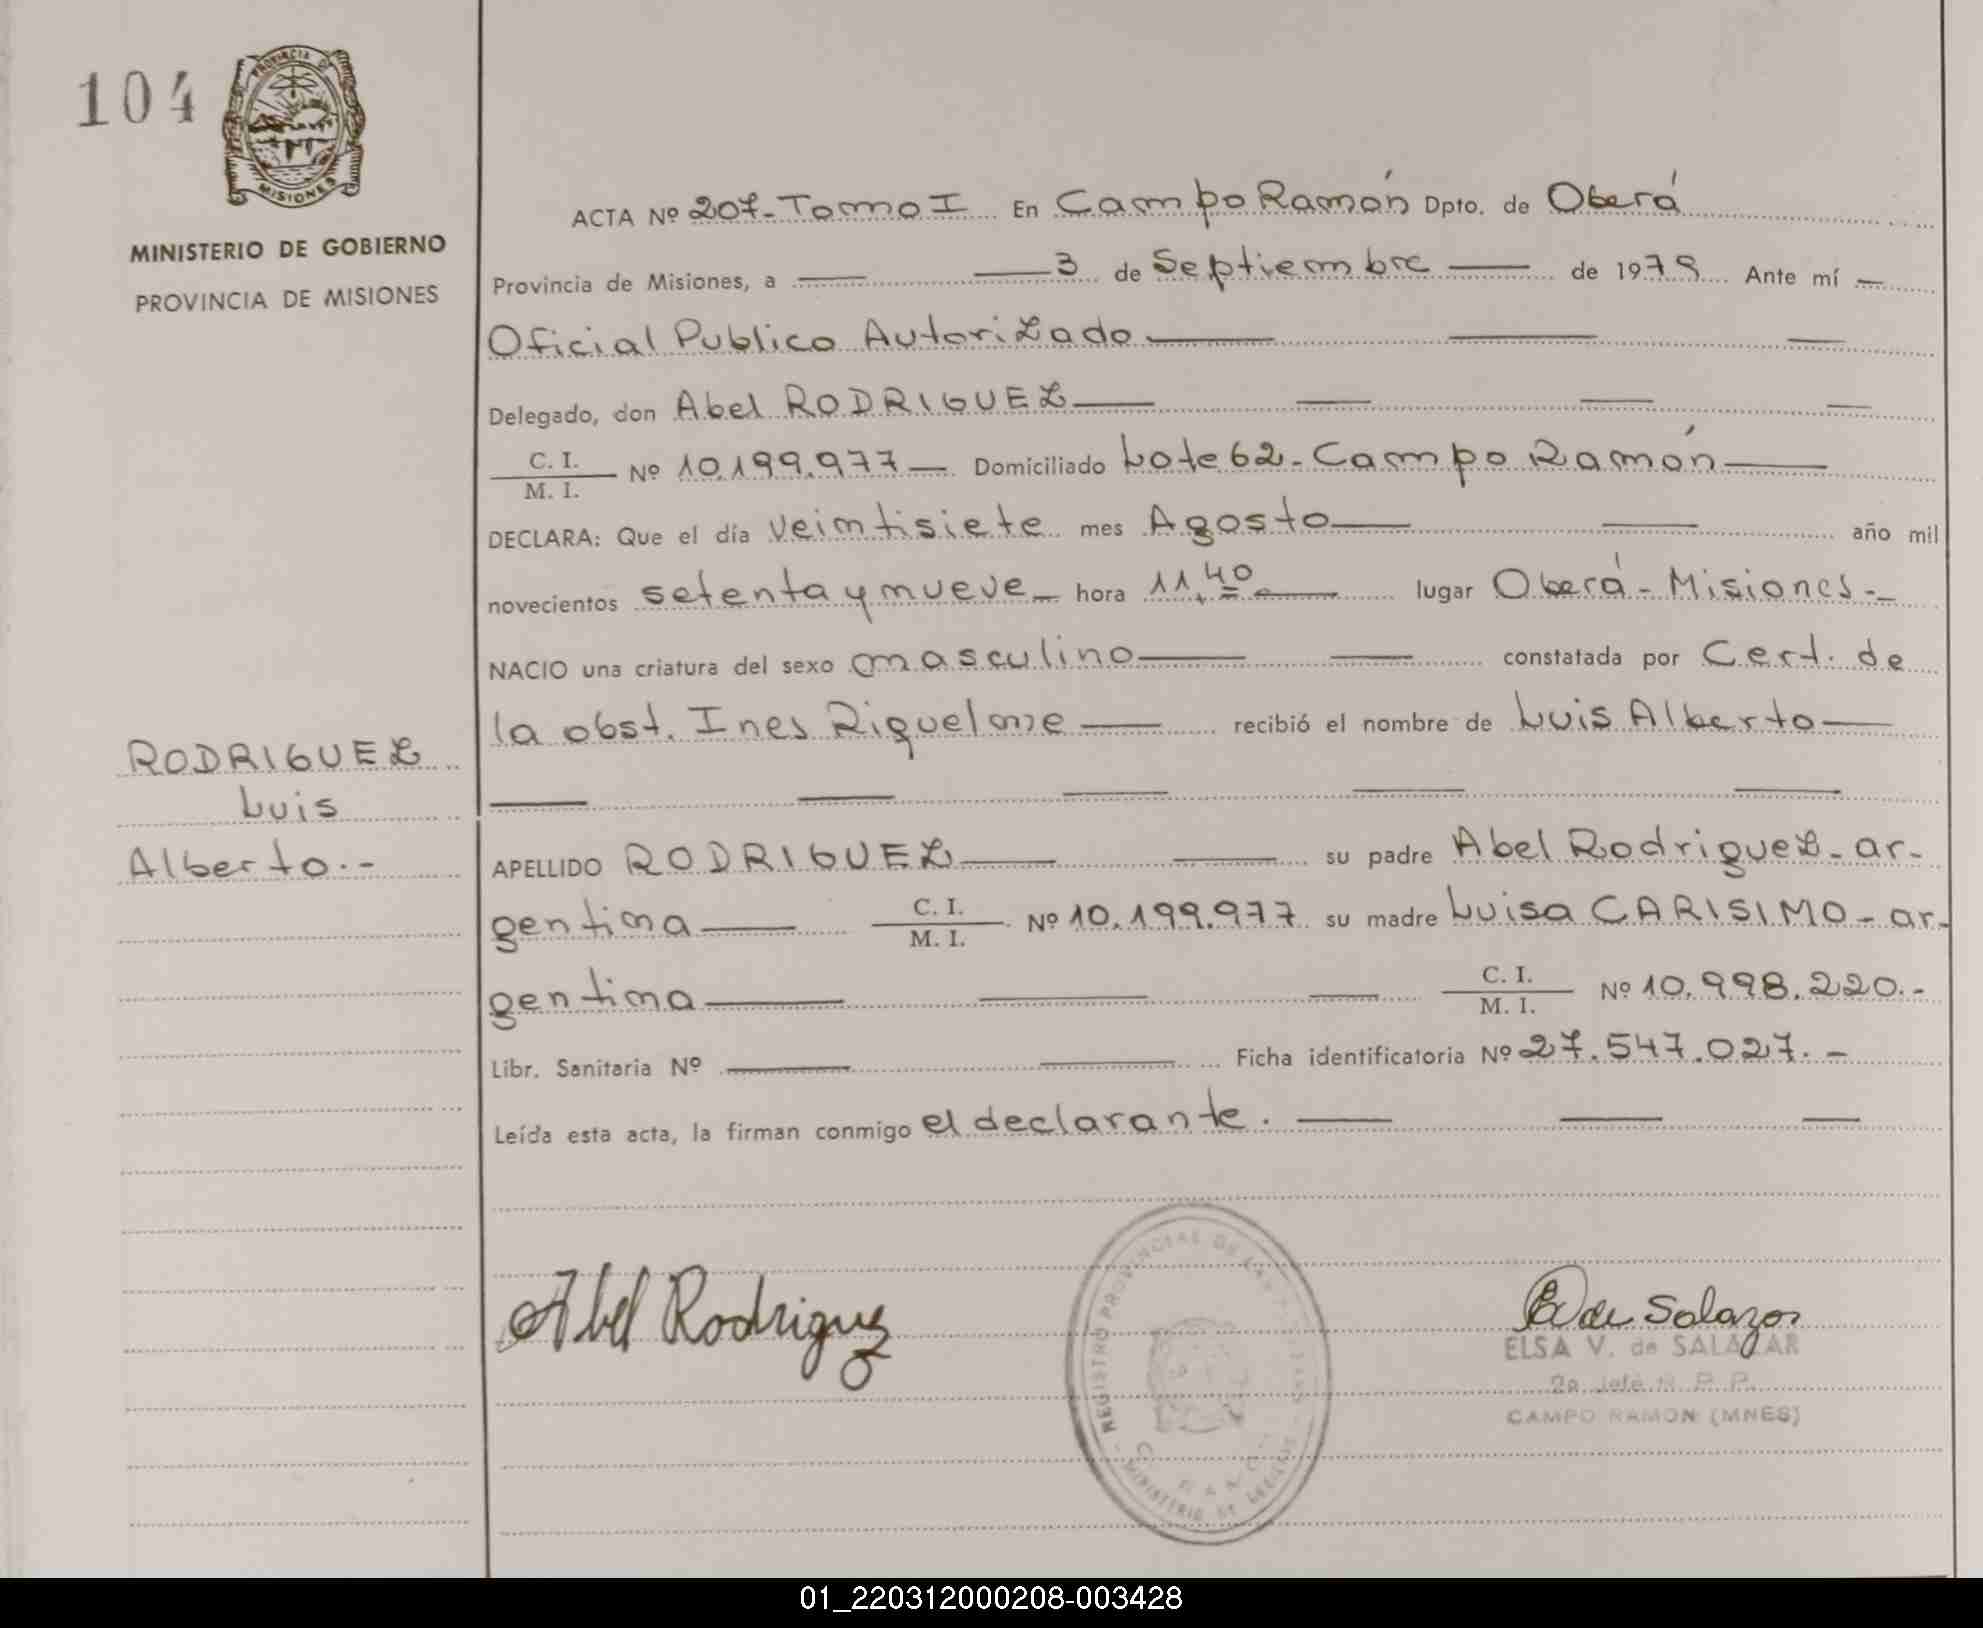 104
PROVINCIA DE
MISIONES
MINISTERIO DE GOBIERNO
PROVINCIA DE MISIONES
ACTA Nº 207-Tomo I En Campo Ramón Dpto. de Oberá
Provincia de Misiones, a 3 de Septiembre de 1979 Ante mí
Oficial Publico Autorizado
Delegado, don Abel RODRIGUEZ
C. I.
M. I. Nº 10.199.977 Domiciliado Lote 62 - Campo Ramón
DECLARA: Que el día veintisiete mes Agosto año mil
novecientos setenta y nueve hora 11,40 lugar Oberá - Misiones.-
NACIO una criatura del sexo masculino constatada por Cert. de
la obst. Ines Riquelme recibió el nombre de Luis Alberto
RODRIGUEZ
Luis
Alberto.-
APELLIDO RODRIGUEZ su padre Abel Rodriguez - ar-
gentina C. I.
M. I. Nº 10.199.977 su madre Luisa CARISIMO - ar-
gentina C. I.
M. I. Nº 10.998.220.-
Libr. Sanitaria Nº Ficha identificatoria Nº 27.547.027.-
Leída esta acta, la firman conmigo el declarante.
Abel Rodriguez
REGISTRO PROVINCIAL DE LAS
MINISTERIO DE
de Salazar
ELSA V. de SALAZAR
2a Jefe R. P. P.
CAMPO RAMON (MNES)
01_220312000208-003428